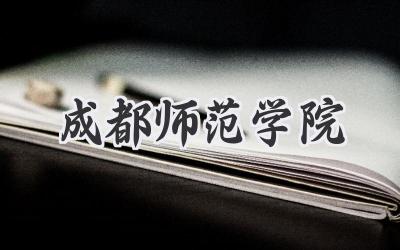 成都师范学院